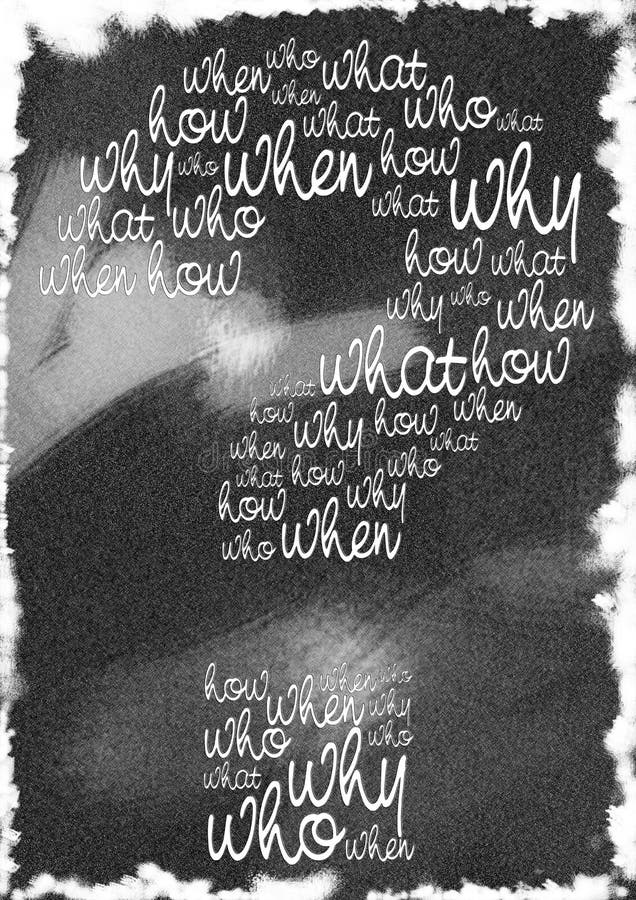 who
when what
when
how what who what
why who when how
what who what why
when how how what
why who when
what what how
how why how when
when what
what how who
how why
who when
how when who
when why
who who
what why
who when